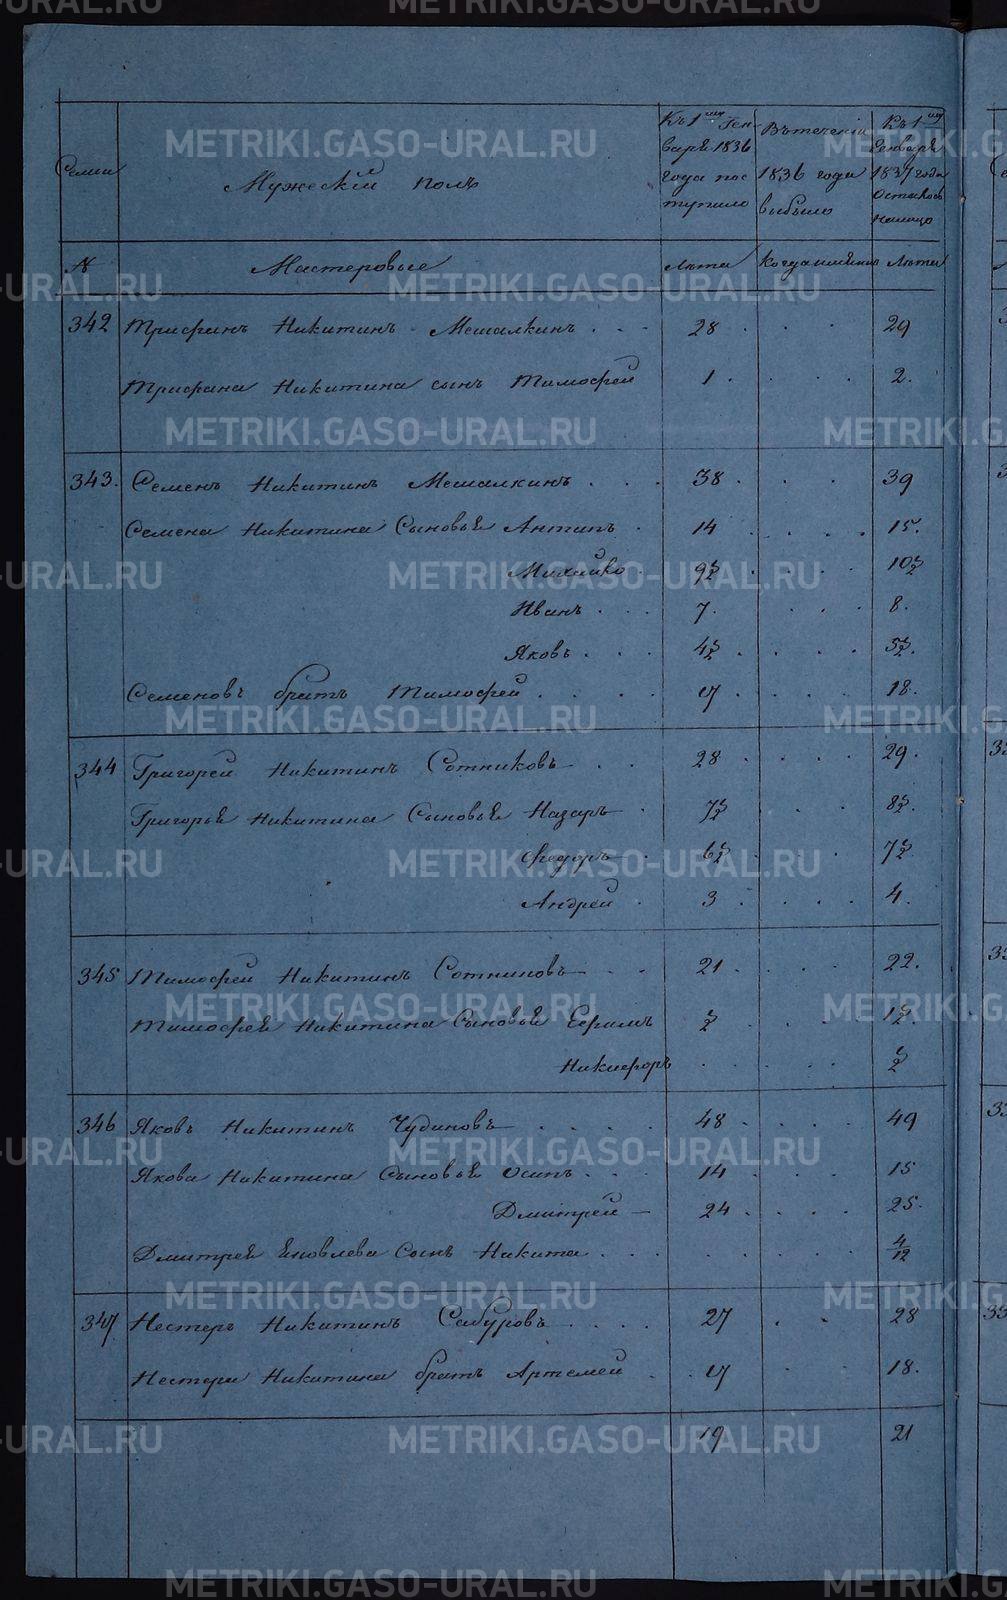 Семьи
Мужеский полъ
Къ 1му Ген
варя 1836
года пос
тупило
Въ течении
1836 года
выбыло
Къ 1му
Генваря
1837 года
Осталось
налицо
N Мастеровые Лѣта Когда и Лѣта
342 Трифанъ Никитинъ Мешалкинъ . . . 28 . . . 29
Трифана Никитина сынъ Тимофей 1 . . . . 2.
343. Семенъ Никитинъ Мешалкинъ . . . 38 . . . . 39
Семена Никитина Сыновья Антипъ . 14 . . . . 15.
Михайло . 9½ . . . 10½
Иванъ . . . 7. . . . 8.
Яковъ . . . 4½ . . . . 5½.
Семеновъ братъ Тимофей . . . . 17 . . . . 18.
344 Григорей Никитинъ Сотниковъ . . 28 . . . 29.
Григорья Никитина Сыновья Назаръ . 7½ . . . 8½.
Федоръ . 6½ . . . 7½
Андрей . 3 . . . . 4.
345 Тимофей Никитинъ Сотниковъ . . 21 . . . . 22.
Тимофея Никитина Сыновья Ефимъ ½ . . . 1½.
Никифоръ . . . . ½
346 Яковъ Никитинъ Чудиновъ . . . . 48 . . . . 49
Якова Никитина Сыновья Осипъ . . . 14 . . 15
Дмитрей — 24 . . . . 25.
Дмитрея Яковлева Сынъ Никита . . . . . . . 4/12
347 Нестеръ Никитинъ Сабуровъ . . . . 27 . . 28
Нестера Никитина братъ Артемей . . 17 . . 18.
19 21
METRIKI.GASO-URAL.RU